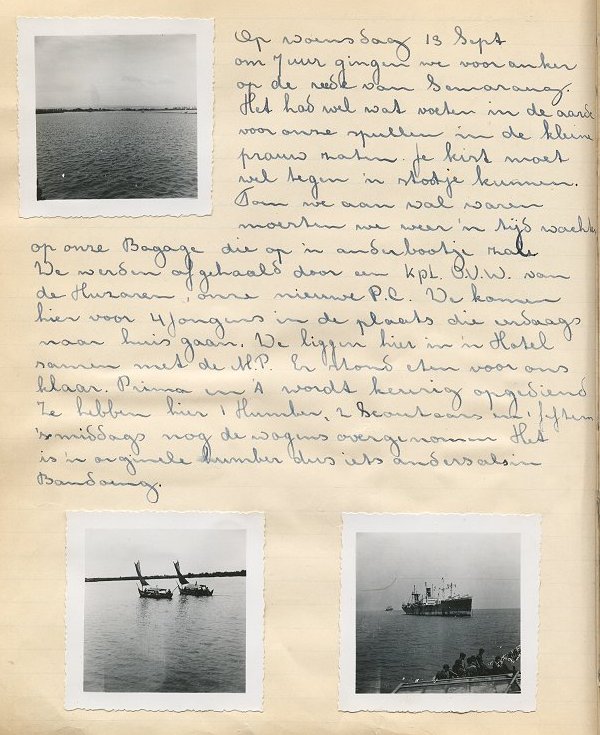 Op woensdag 13 Sept
om 7 uur gingen we voor anker
op de rede van Semarang.
Het had wel wat voeten in de aarde
voor onze spullen in de kleine
prauw zaten. Je kist moet
wel tegen 'n stootje kunnen.
Toen we aan wal waren
moesten we weer 'n tijd wachten
op onze Bagage die op 'n ander bootje zat.
We werden afgehaald door een Kpl. B.V.W. van
de Huzaren, onze nieuwe P.C. We komen
hier voor 4 jongens in de plaats die erdaags
naar huis gaan. We liggen hier in 'n Hotel
samen met de M.P. Er stond eten voor ons
klaar. Prima en 't wordt keurig opgediend
Ze hebben hier 1 Humber, 2 Scoutcars en 1 fiften
'smiddags nog de wagens overgenomen Het
is 'n orginele humber dus iets anders als in
Bandoeng.